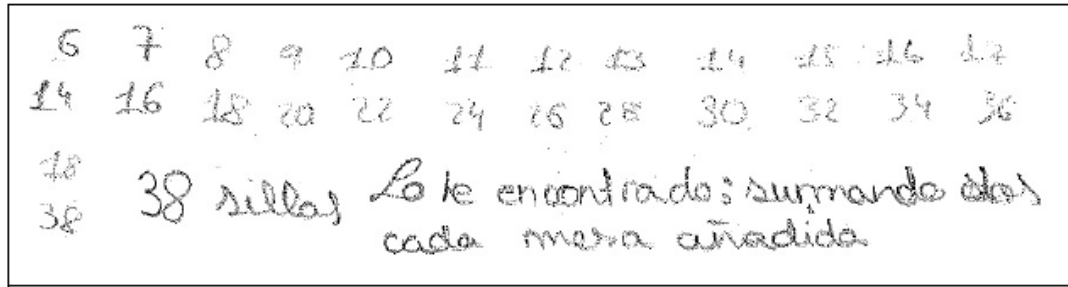 6 7 8 9 10 11 12 13 14 15 16 17
14 16 18 20 22 24 26 28 30 32 34 36
18
38
38 sillas Lo he encontrado: sumando dos
cada mesa añadida